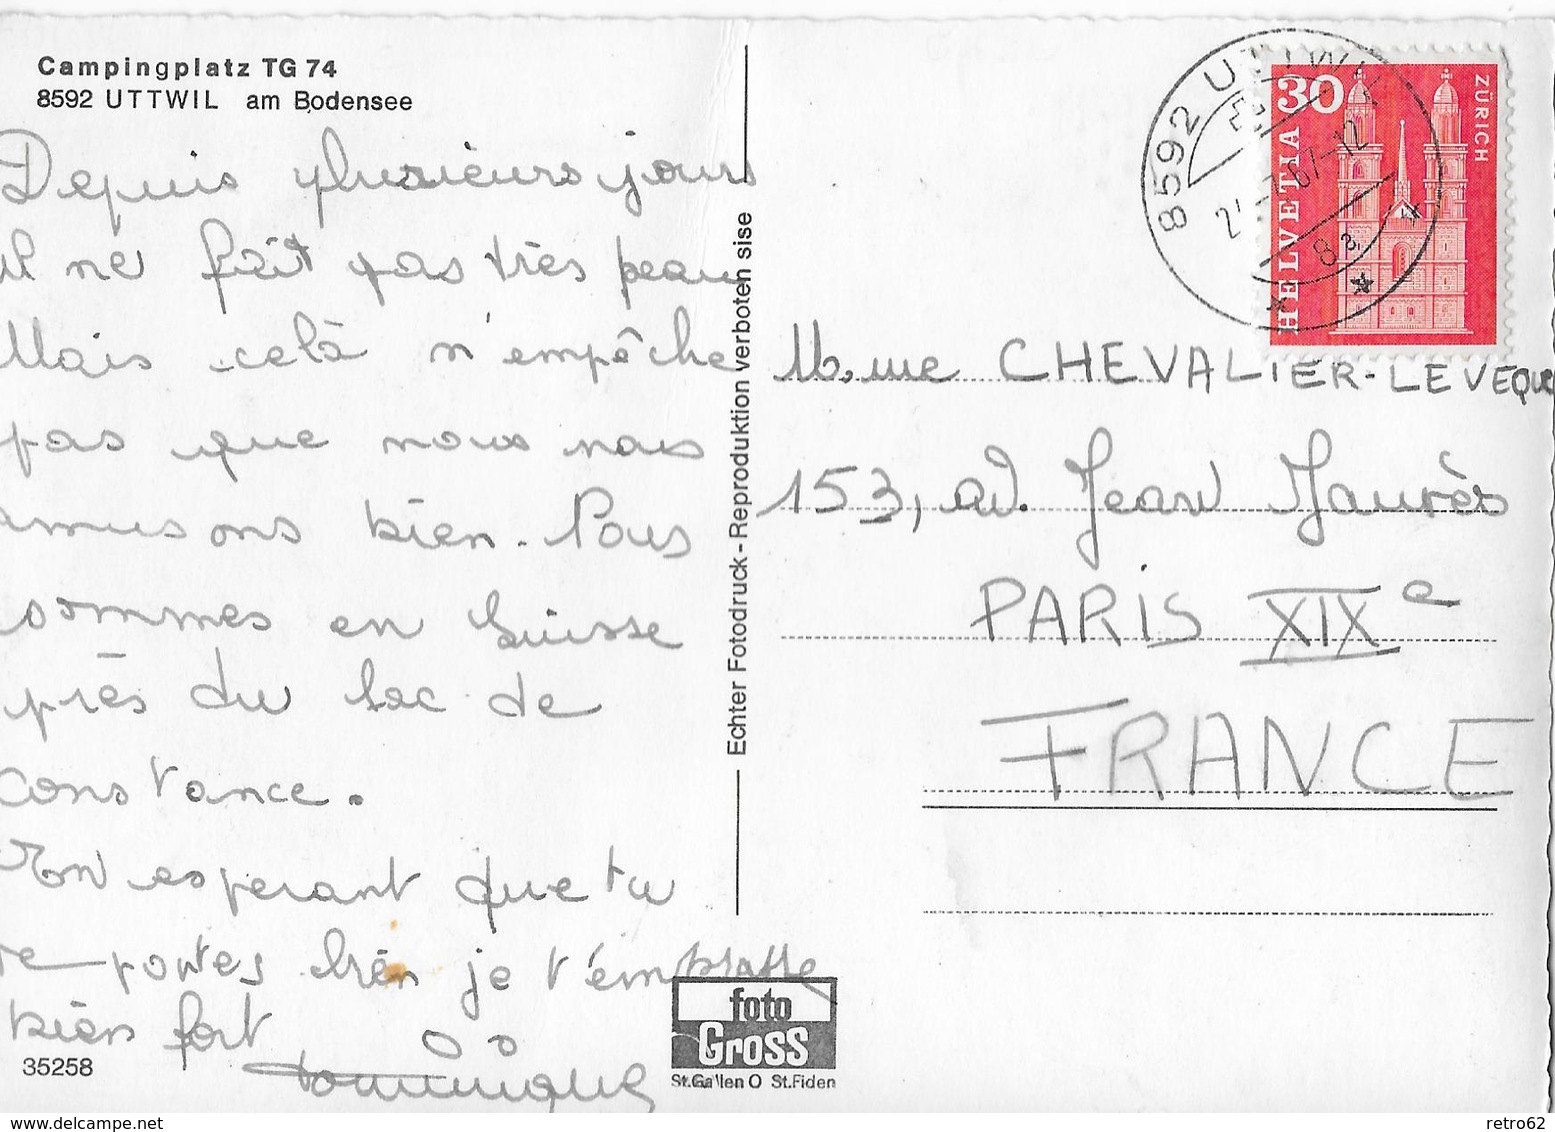 Campingplatz TG 74
8592 UTTWIL am Bodensee
Depuis plusieurs jours
il ne fait pas très peau
Mais celà n'empêche
pas que nous nous
amusons bien. Nous
sommes en Suisse
près du lac de
constance.
En esperant que tu
te portes bien je t'embrasse
bien fort
Dominique
35258
Echter Fotodruck - Reproduktion verboten sise
foto
Gross
St.Gallen O St.Fiden
8592 UTTWIL
67-12
8a
30
HELVETIA
ZÜRICH
M.me CHEVALIER-LEVEQUE
153, av. Jean Jaurès
PARIS XIXe
FRANCE
http://www.delcampe.net
retro62